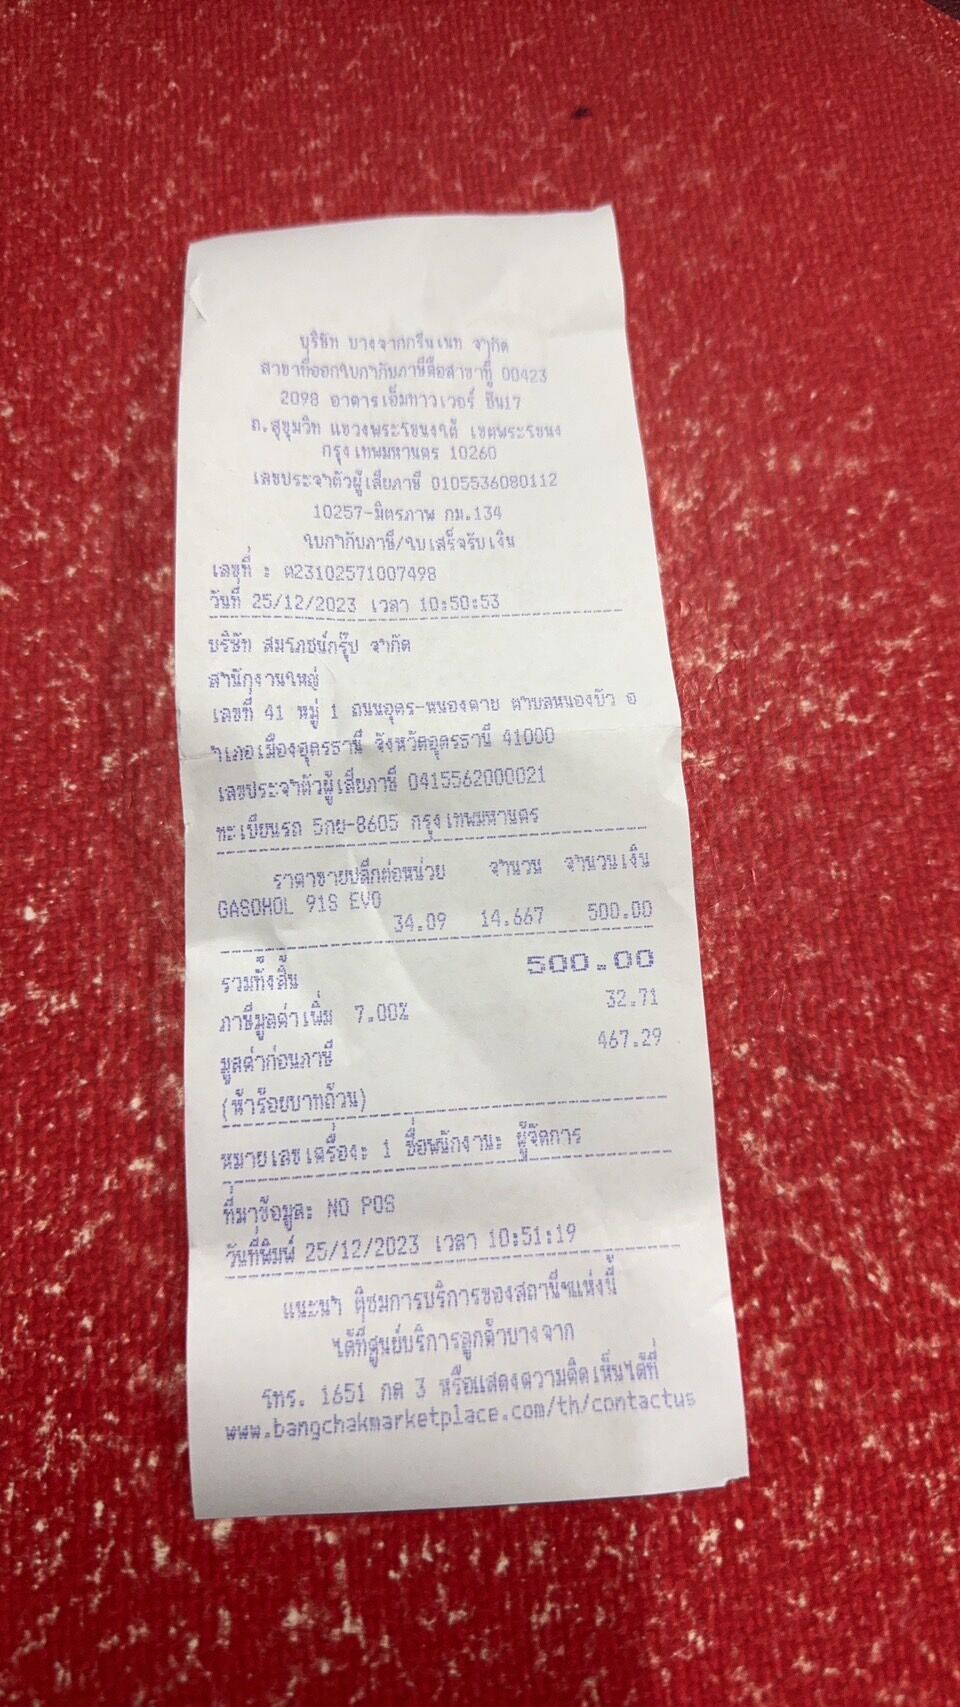 บริษัท บางจากกรีนเนท จำกัด
สาขาที่ออกใบกำกับภาษีคือสาขาที่ 00423
2098 อาคารเอ็มทาวเวอร์ ชั้น17
ถ.สุขุมวิท แขวงพระโขนงใต้ เขตพระโขนง
กรุงเทพมหานคร 10260
เลขประจำตัวผู้เสียภาษี 0105536080112
10257-มิตรภาพ กม.134
ใบกำกับภาษี/ใบเสร็จรับเงิน
เลขที่ : ต23102571007498
วันที่ 25/12/2023 เวลา 10:50:53
บริษัท สมโภชน์กรุ๊ป จำกัด
สำนักงานใหญ่
เลขที่ 41 หมู่ 1 ถนนอุดร-หนองคาย ตำบลหนองบัว อ
ำเภอเมืองอุดรธานี จังหวัดอุดรธานี 41000
เลขประจำตัวผู้เสียภาษี 0415562000021
ทะเบียนรถ 5กย-8605 กรุงเทพมหานคร
ราคาขายปลีกต่อหน่วย จำนวน จำนวนเงิน
GASOHOL 91S EVO
34.09 14.667 500.00
รวมทั้งสิ้น 500.00
ภาษีมูลค่าเพิ่ม 7.00% 32.71
มูลค่าก่อนภาษี 467.29
(ห้าร้อยบาทถ้วน)
หมายเลขเครื่อง: 1 ชื่อพนักงาน: ผู้จัดการ
ที่มาข้อมูล: NO POS
วันที่พิมพ์ 25/12/2023 เวลา 10:51:19
แนะนำ ติชมการบริการของสถานีฯแห่งนี้
ได้ที่ศูนย์บริการลูกค้าบางจาก
โทร. 1651 กด 3 หรือแสดงความคิดเห็นได้ที่
www.bangchakmarketplace.com/th/contactus